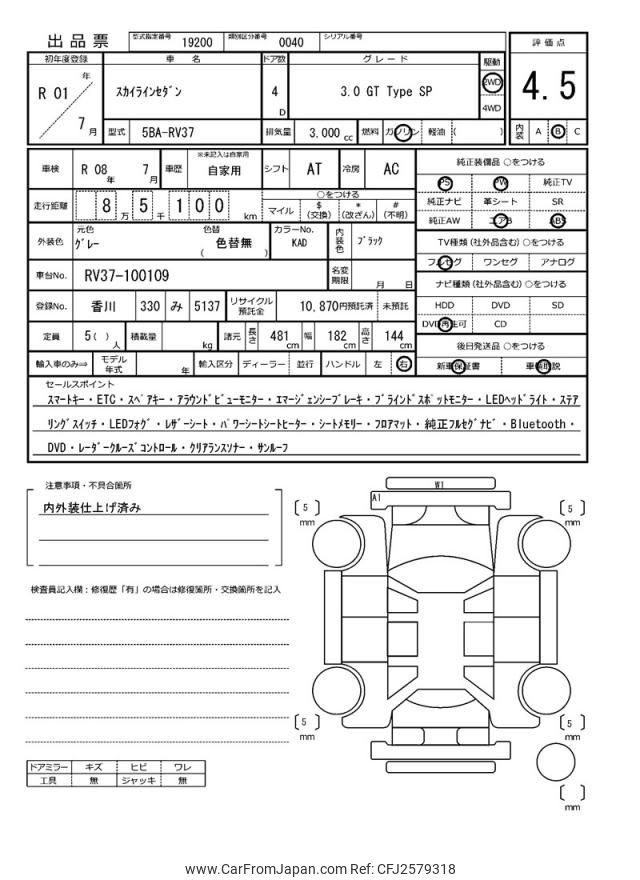 出品票 型式指定番号 19200 類別区分番号 0040 シリアル番号
評価点
4.5
内装 A B C
初年度登録 車名 ドア数 グレード 駆動
R 01 年 7月 スカイラインセダン 4 D 3.0 GT Type SP 2WD 4WD
型式 5BA-RV37 排気量 3,000 cc 燃料 ガソリン 軽油 ( )
車検 R 08 年 7 月 車歴 ※未記入は自家用 自家用 シフト AT 冷房 AC
走行距離 8 万 5 千 1 0 0 km ○をつける マイル $ (交換) * (改ざん) # (不明)
外装色 元色 グレー 色替 ( 色替無 ) カラーNo. KAD 内装色 ブラック
車台No. RV37-100109 名変期限 月 日
登録No. 香川 330 み 5137 リサイクル預託金 10,870円預託済 未預託
定員 5( )人 積載量 kg 諸元 長さ 481cm 幅 182cm 高さ 144cm
輸入車のみ⇒ モデル年式 年 輸入区分 ディーラー 並行 ハンドル 左 右
純正装備品 ○をつける
PS PW 純正TV
純正ナビ 革シート SR
純正AW エアB ABS
TV種類 (社外品含む) ○をつける
フルセグ ワンセグ アナログ
ナビ種類 (社外品含む) ○をつける
HDD DVD SD
DVD再生可 CD
後日発送品 ○をつける
新車保証書 車輌取説
セールスポイント
スマートキー・ETC・スペアキー・アラウンドビューモニター・エマージェンシーブレーキ・ブラインドスポットモニター・LEDヘッドライト・ステア
リングスイッチ・LEDフォグ・レザーシート・パワーシートシートヒーター・シートメモリー・フロアマット・純正フルセグナビ・Bluetooth・
DVD・レーダークルーズコントロール・クリアランスソナー・サンルーフ
注意事項・不具合箇所
内外装仕上げ済み
検査員記入欄：修復歴「有」の場合は修復箇所・交換箇所を記入
W1
A1
5 mm
5 mm
5 mm
5 mm
mm
ドアミラー キズ ヒビ ワレ
工具 無 ジャッキ 無
www.CarFromJapan.com Ref: CFJ2579318